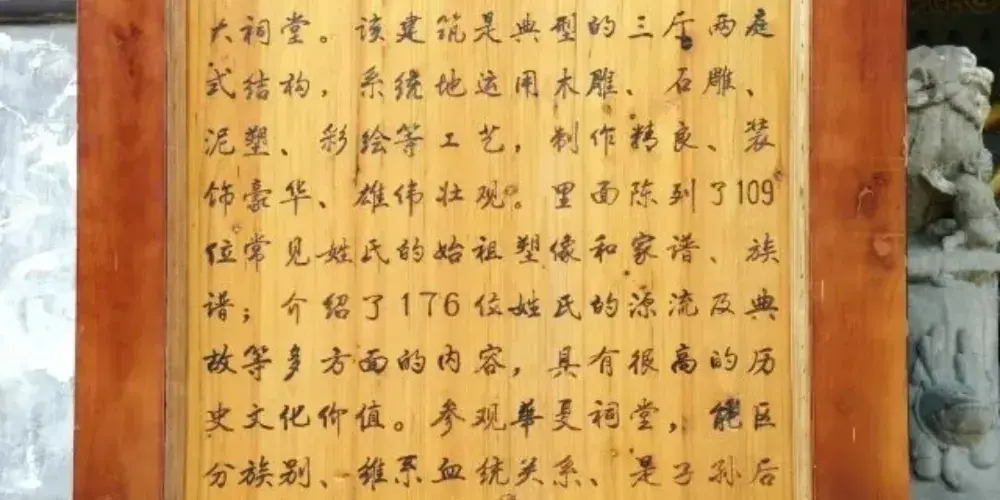 大祠堂。该建筑是典型的三厅两庭
式结构，系统地运用木雕、石雕、
泥塑、彩绘等工艺，制作精良、装
饰豪华、雄伟壮观。里面陈到了109
位常见姓氏的始祖塑像和家谱、族
谱；介绍了176位姓氏的源流及典
故等多方面的内容，具有很高的历
史文化价值。参观华夏祠堂，能区
分族别、维系血统关系、是子孙后